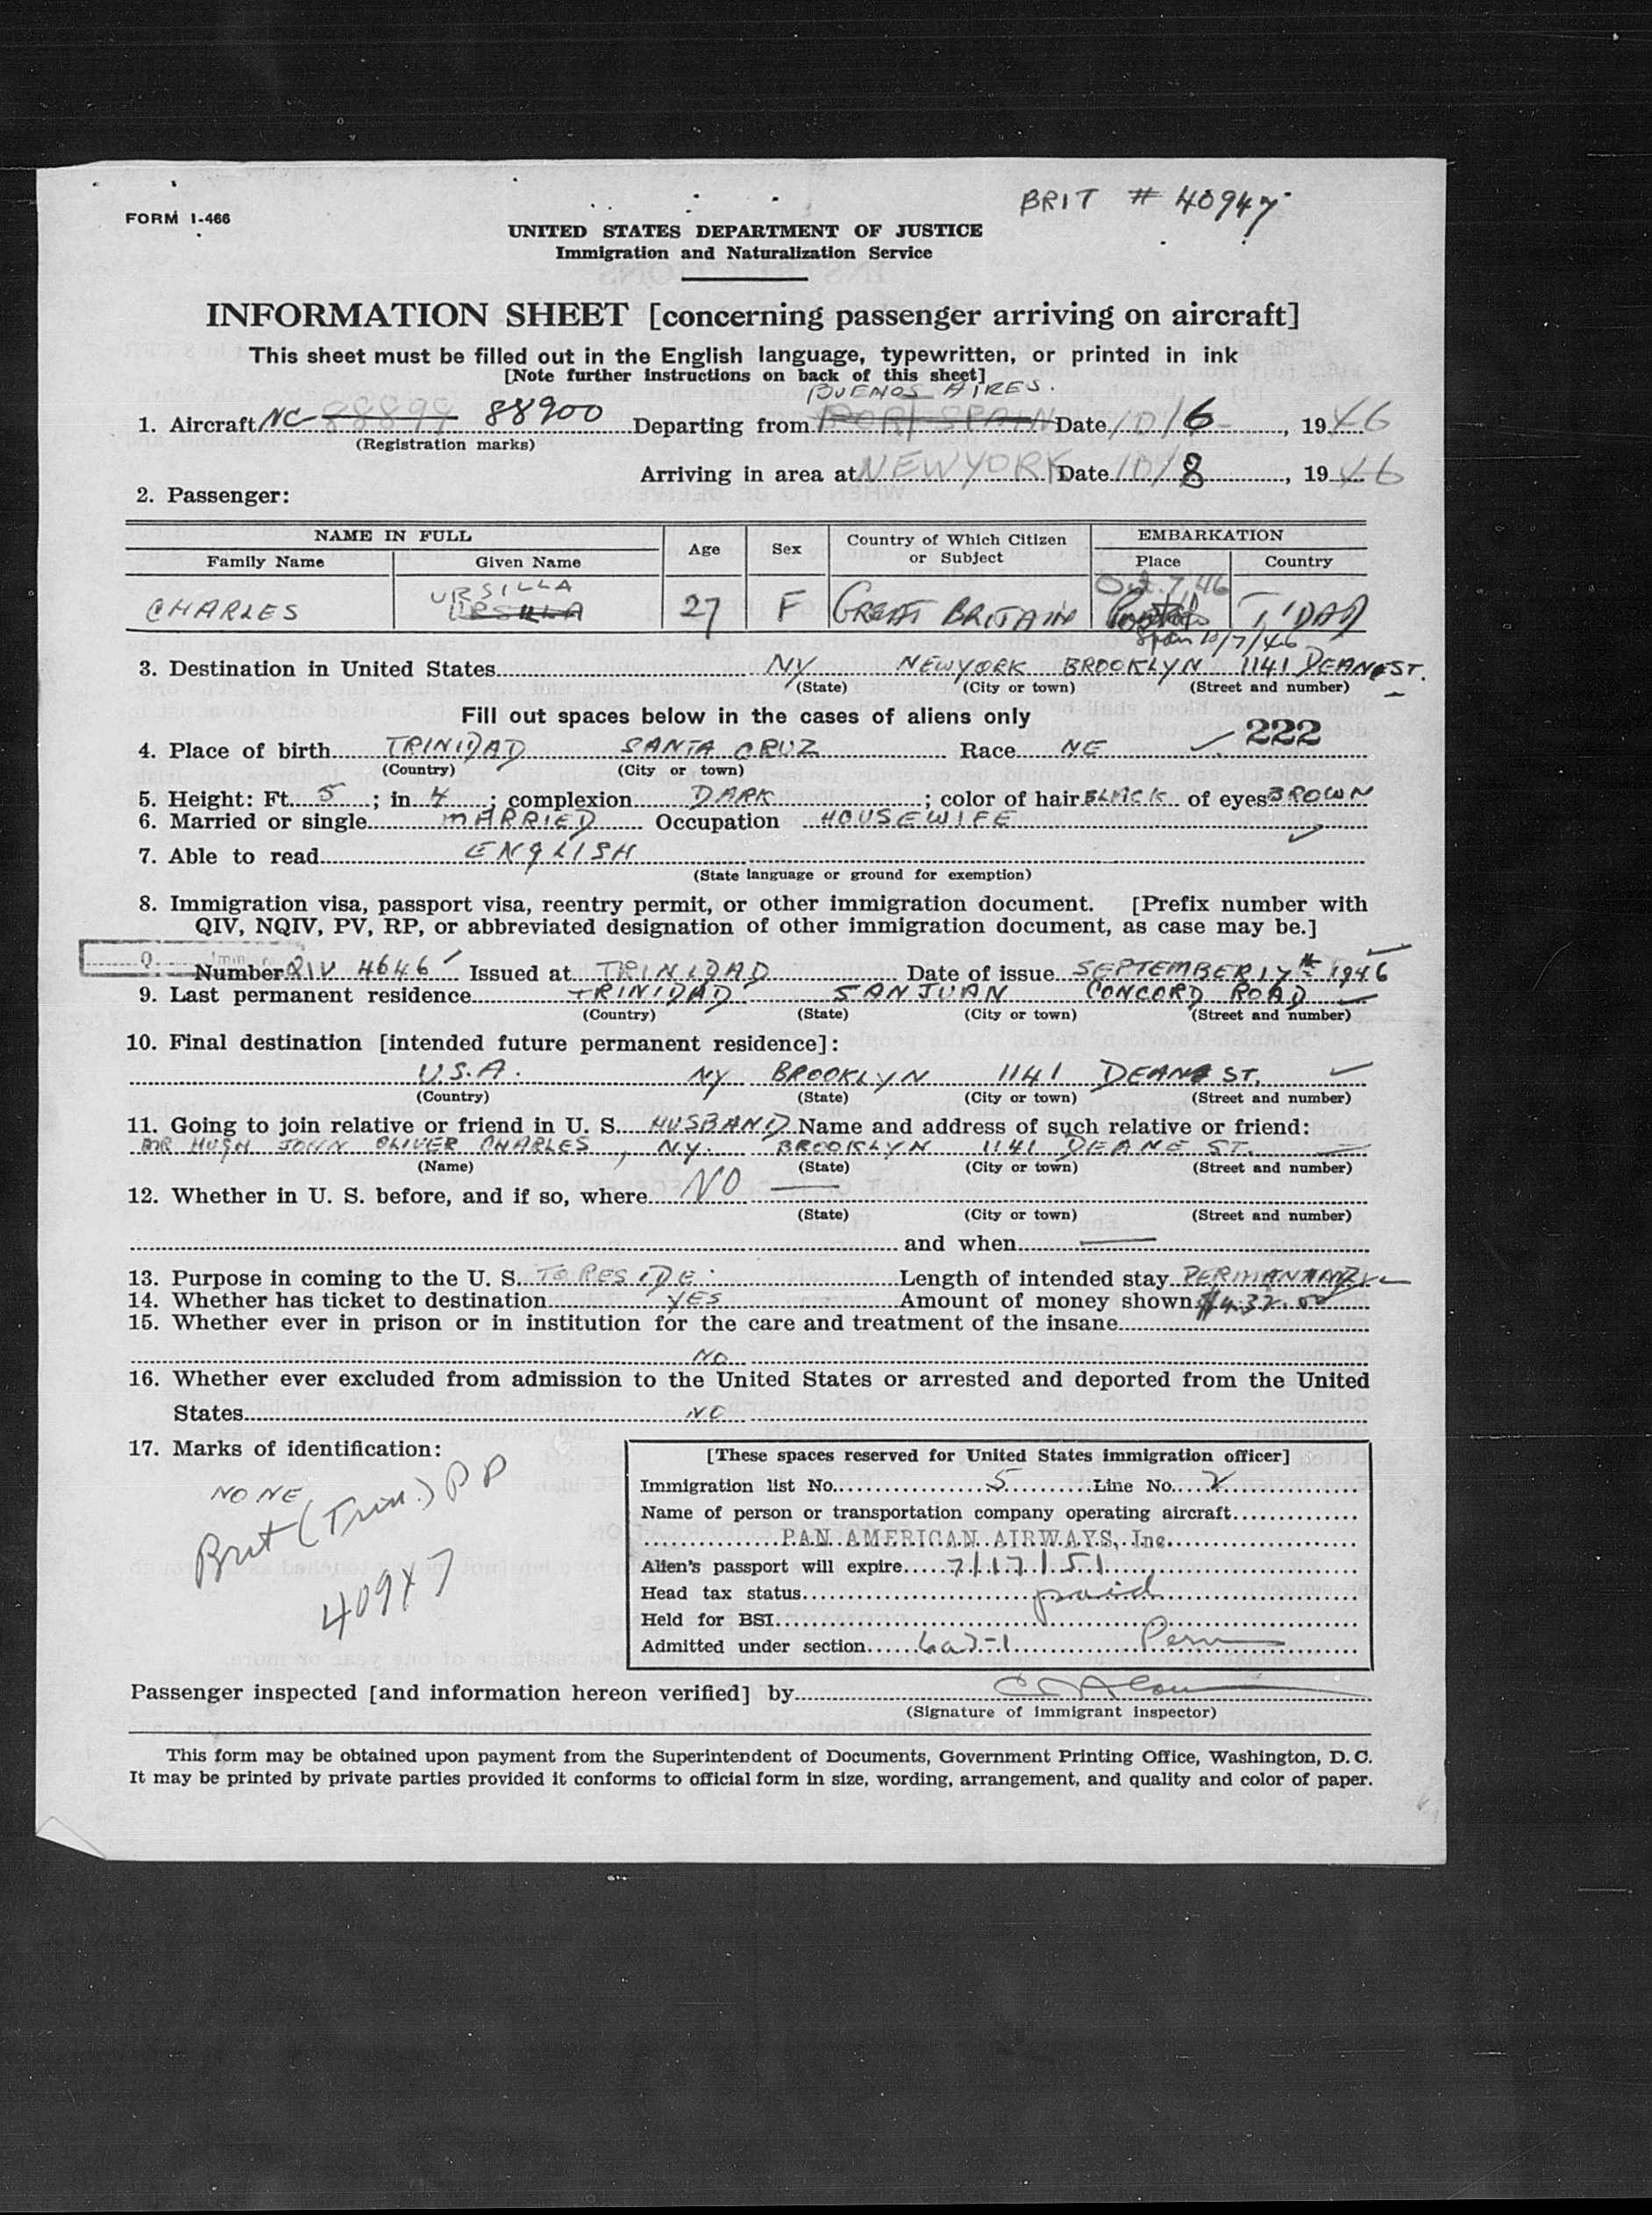 BRIT # 40947
FORM I-466
UNITED STATES DEPARTMENT OF JUSTICE
Immigration and Naturalization Service
INFORMATION SHEET [concerning passenger arriving on aircraft]
This sheet must be filled out in the English language, typewritten, or printed in ink
[Note further instructions on back of this sheet]
BUENOS AIRES.
1. Aircraft NC- 88899 88900 Departing from PORT SPAIN Date 10/6, 1946
(Registration marks)
Arriving in area at NEWYORK Date 10/8, 1946
2. Passenger:
NAME IN FULL Age Sex Country of Which Citizen or Subject EMBARKATION
Family Name Given Name Place Country
URSILLA Oct. 7, 46
CHARLES URSILLA 27 F GREAT BRITAIN T'DAD
Spain 10/7/46
3. Destination in United States NY NEWYORK BROOKLYN 1141 DEANE ST.
(State) (City or town) (Street and number)
Fill out spaces below in the cases of aliens only
222
4. Place of birth TRINIDAD SANTA CRUZ Race NE
(Country) (City or town)
5. Height: Ft. 5; in. 4; complexion DARK; color of hair BLACK of eyes BROWN
6. Married or single MARRIED Occupation HOUSEWIFE
7. Able to read ENGLISH
(State language or ground for exemption)
8. Immigration visa, passport visa, reentry permit, or other immigration document. [Prefix number with
QIV, NQIV, PV, RP, or abbreviated designation of other immigration document, as case may be.]
Number QIV 4646 Issued at TRINIDAD Date of issue SEPTEMBER 17th 1946
9. Last permanent residence TRINIDAD SAN JUAN CONCORD ROAD
(Country) (State) (City or town) (Street and number)
10. Final destination [intended future permanent residence]:
U.S.A. NY BROOKLYN 1141 DEANE ST.
(Country) (State) (City or town) (Street and number)
11. Going to join relative or friend in U. S. HUSBAND Name and address of such relative or friend:
MR HUGH JOHN OLIVER CHARLES, N.Y. BROOKLYN 1141 DEANE ST.
(Name) (State) (City or town) (Street and number)
12. Whether in U. S. before, and if so, where NO
(State) (City or town) (Street and number)
and when
13. Purpose in coming to the U. S. TO RESIDE Length of intended stay
14. Whether has ticket to destination YES Amount of money shown $432.00
15. Whether ever in prison or in institution for the care and treatment of the insane
NO
16. Whether ever excluded from admission to the United States or arrested and deported from the United
States NO
17. Marks of identification:
NONE
Brit (Trin.) PP
40947
[These spaces reserved for United States immigration officer]
Immigration list No. 5 Line No. 2
Name of person or transportation company operating aircraft
PAN AMERICAN AIRWAYS, Inc.
Alien's passport will expire 7/17/51
Head tax status paid
Held for BSI
Admitted under section 6a3-1 Perm
Passenger inspected [and information hereon verified] by
(Signature of immigrant inspector)
This form may be obtained upon payment from the Superintendent of Documents, Government Printing Office, Washington, D. C.
It may be printed by private parties provided it conforms to official form in size, wording, arrangement, and quality and color of paper.